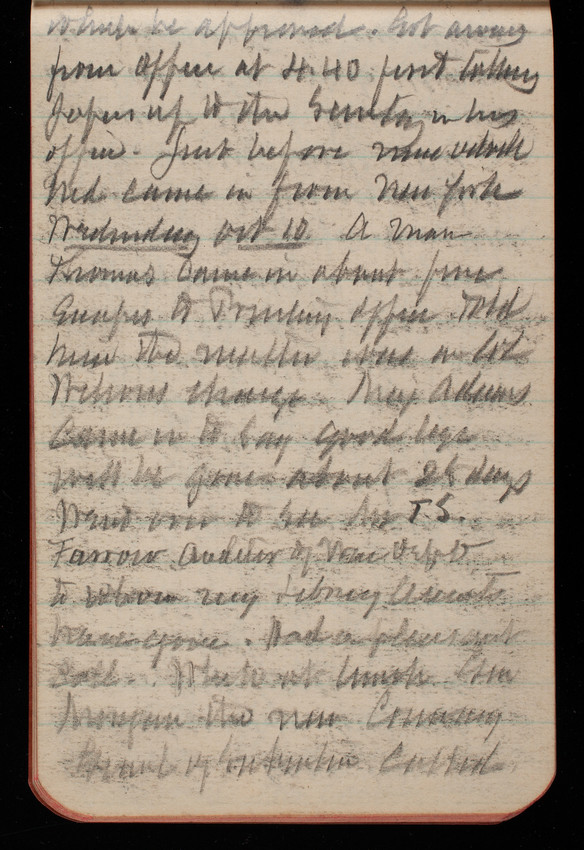 be approved. Got away
from office at 4.40 just taking
papers up to the Secretary in his
office. Just before nine oclock
Ned came in from New York
Wednesday Oct 10 A man
Thomas came in about fire
Escapes to Printing office Told
him the matter was in Col
Wilsons charge. Maj Adams
came in to say good bye
will be gone about 25 days
Went over to see Mr T S.
Farrow Auditor of War Dept
to whom my Library accounts
have gone. Had a pleasant
call. While at lunch Gen
the new
called